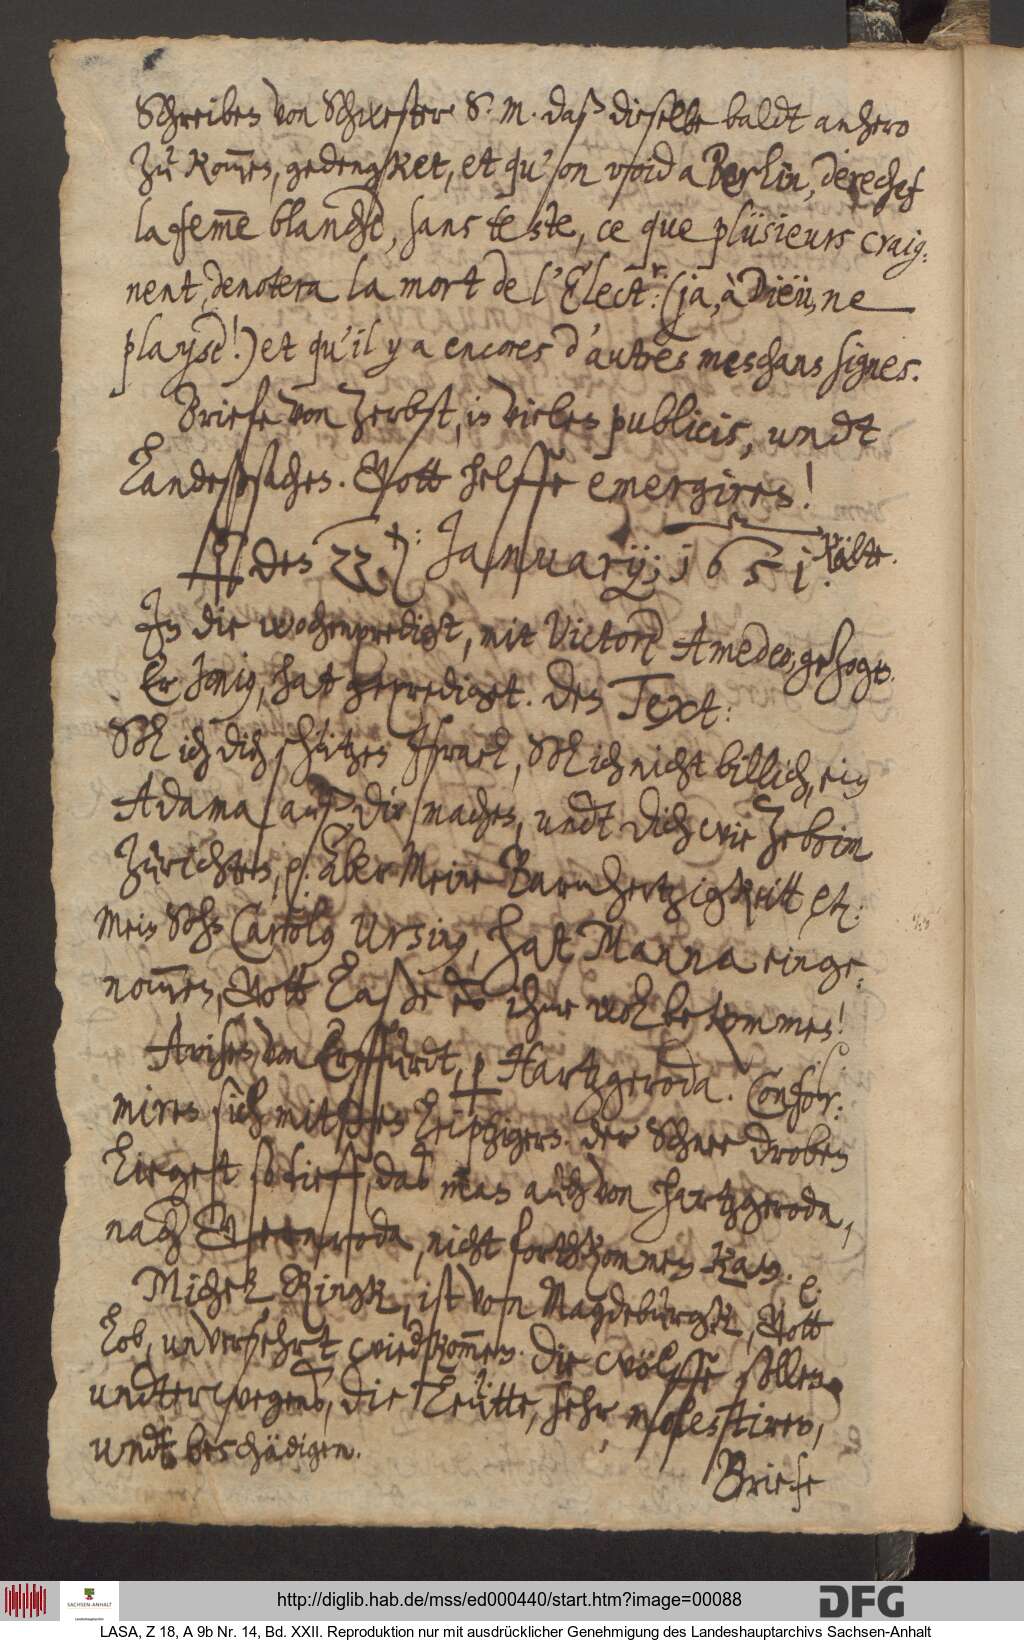 Schreiben von Schwester S. M. daß dieselbe baldt anhero
zu kommen, gedengket, et qu'on void a Berlin, derechef
la femme blanche, sans teste, ce que plüsieurs craig¬
nent, denotera la mort de l'Elect.r: (ja, à Dieü, ne
playse!) et qu'il y a encores d'autres meschans signes.
Briefe von Zerbst, in vielen publicis, undt
Landeßsachen. Gott helffe emergiren!
☿ den 22. Januarij; 1651. Kälte.
In die wochenpredigt, mit Victore Amedeo, gezogen.
Er Jonius, hat geprediget. Den Text:
Soll ich dich schützen Israel, Soll ich nicht billich, ein
Adama auß dir machen, undt dich wie Zeboim
zurichten, p. Aber Meine Barmhertzigkeitt etc:
Mein Sohn Carolus Ursinus, hat Manna einge¬
nommen, Gott laße es ihme wol bekommen!
Avisen von Erffurdt, p Hartzgeroda. Confor¬
miren sich mitt den Leiptzigern. Der Schnee droben
lieget so tieff, das man auch von Hartzgeroda,
nach nicht forthkommen kan. p.
Michel Ringk, ist von Magdeburgk, Gott
lob, unversehrt wiederkommen. Die wölffe sollen
undterwegens, die Leütte, sehr, molestiren,
undt beschädigen.
Briefe
http://diglib.hab.de/mss/ed000440/start.htm?image=00088
DFG
SACHSEN-ANHALT
LASA, Z 18, A 9b Nr. 14, Bd. XXII. Reproduktion nur mit ausdrücklicher Genehmigung des Landeshauptarchivs Sachsen-Anhalt